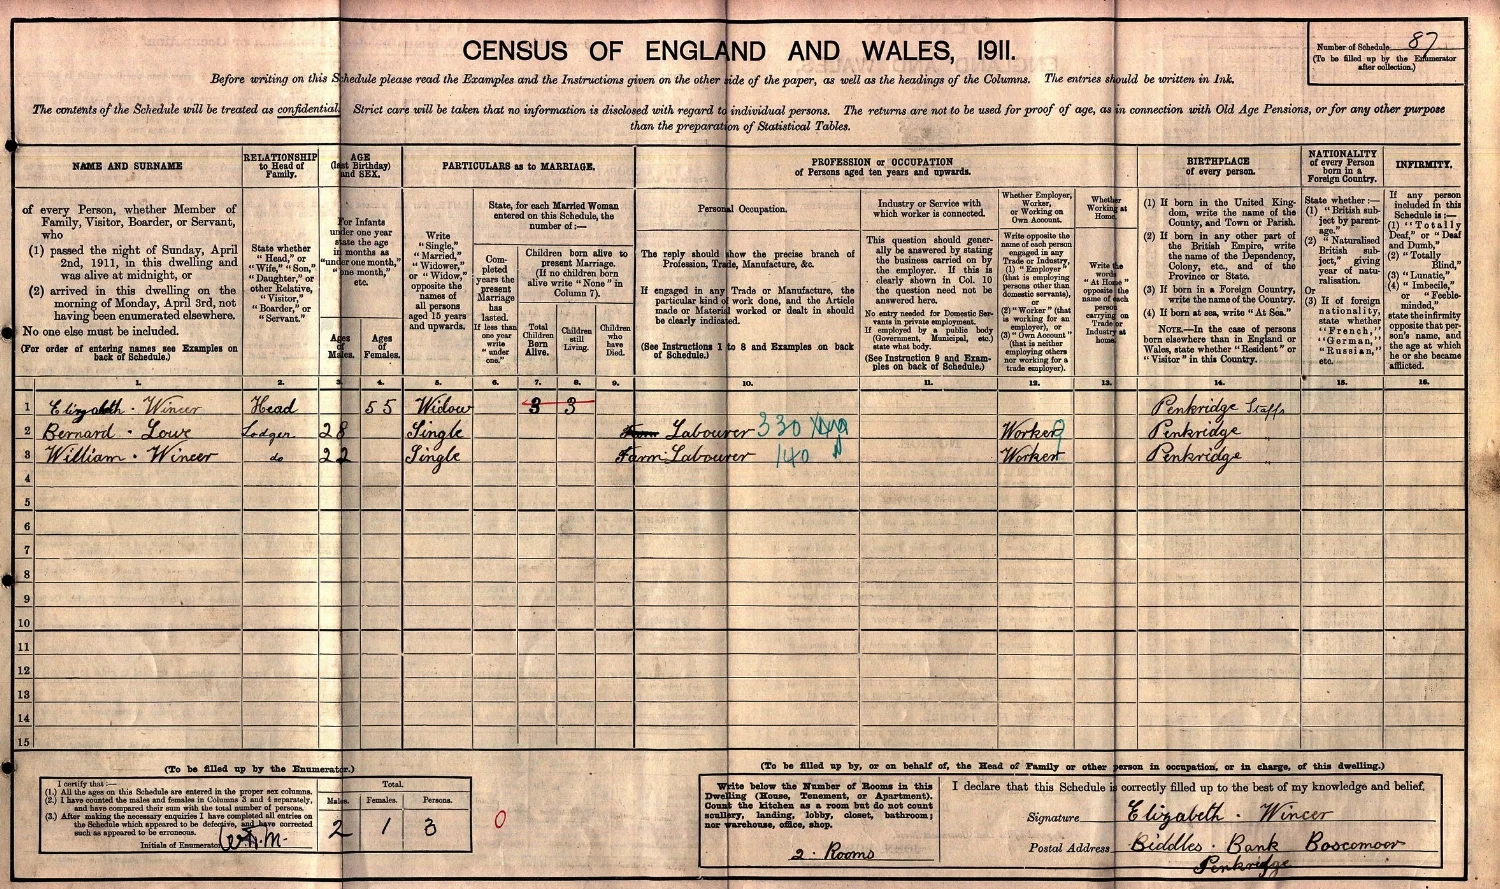 CENSUS OF ENGLAND AND WALES, 1911.
Number of Schedule 87
(To be filled up by the Enumerator
after collection.)
Before writing on this Schedule please read the Examples and the Instructions given on the other side of the paper, as well as the headings of the Columns. The entries should be written in Ink.
The contents of the Schedule will be treated as confidential. Strict care will be taken that no information is disclosed with regard to individual persons. The returns are not to be used for proof of age, as in connection with Old Age Pensions, or for any other purpose
than the preparation of Statistical Tables.
NAME AND SURNAME
of every Person, whether Member of
Family, Visitor, Boarder, or Servant,
who
(1) passed the night of Sunday, April
2nd, 1911, in this dwelling and
was alive at midnight, or
(2) arrived in this dwelling on the
morning of Monday, April 3rd, not
having been enumerated elsewhere.
No one else must be included.
(For order of entering names see Examples on
back of Schedule.)
RELATIONSHIP
to Head of
Family.
State whether
"Head," or
"Wife," "Son,"
"Daughter," or
other Relative,
"Visitor,"
"Boarder," or
"Servant."
AGE
(last Birthday)
and SEX.
For Infants
under one year
state the age
in months as
"under one month,"
"one month,"
etc.
Ages
of
Males.
Ages
of
Females.
PARTICULARS as to MARRIAGE.
Write
"Single,"
"Married,"
"Widower,"
or "Widow,"
opposite the
names of
all persons
aged 15 years
and upwards.
State, for each Married Woman
entered on this Schedule, the
number of:—
Completed
years the
present
Marriage
has
lasted.
If less than
one year
write
"under
one."
Children born alive to
present Marriage.
(If no children born
alive write "None" in
Column 7).
Total
Children
Born
Alive.
Children
still
Living.
Children
who
have
Died.
PROFESSION or OCCUPATION
of Persons aged ten years and upwards.
Personal Occupation.
The reply should show the precise branch of
Profession, Trade, Manufacture, &c.
If engaged in any Trade or Manufacture, the
particular kind of work done, and the Article
made or Material worked or dealt in should
be clearly indicated.
(See Instructions 1 to 8 and Examples on back
of Schedule.)
Industry or Service with
which worker is connected.
This question should gener-
ally be answered by stating
the business carried on by
the employer. If this is
clearly shown in Col. 10
the question need not be
answered here.
No entry needed for Domestic Ser-
vants in private employment.
If employed by a public body
(Government, Municipal, etc.)
state what body.
(See Instruction 9 and Exam-
ples on back of Schedule.)
Whether Employer,
Worker,
or Working on
Own Account.
Write opposite the
name of each person
engaged in any
Trade or Industry,
(1) "Employer"
(that is employing
persons other than
domestic servants),
or
(2) "Worker" (that
is working for an
employer), or
(3) "Own Account"
(that is neither
employing others
nor working for a
trade employer).
Whether
Working at
Home.
Write the
words
"At Home"
opposite the
name of each
person
carrying on
Trade or
Industry at
home.
BIRTHPLACE
of every person.
(1) If born in the United King-
dom, write the name of the
County, and Town or Parish.
(2) If born in any other part of
the British Empire, write
the name of the Dependency,
Colony, etc., and of the
Province or State.
(3) If born in a Foreign Country,
write the name of the Country.
(4) If born at sea, write "At Sea."
NOTE.—In the case of persons
born elsewhere than in England or
Wales, state whether "Resident" or
"Visitor" in this Country.
NATIONALITY
of every Person
born in a
Foreign Country.
State whether:—
(1) "British sub-
ject by parent-
age."
(2) "Naturalised
British sub-
ject," giving
year of natu-
ralisation.
Or
(3) If of foreign
nationality,
state whether
"French,"
"German,"
"Russian,"
etc.
INFIRMITY.
If any person
included in this
Schedule is:—
(1) "Totally
Deaf," or "Deaf
and Dumb,"
(2) "Totally
Blind,"
(3) "Lunatic,"
(4) "Imbecile,"
or "Feeble-
minded,"
state the infirmity
opposite that per-
son's name, and
the age at which
he or she became
afflicted.
1. 2. 3. 4. 5. 6. 7. 8. 9. 10. 11. 12. 13. 14. 15. 16.
1 Elizabeth . Wincer Head 55 Widow 3 3 Penkridge Staffs
2 Bernard . Lowe Lodger 28 Single Farm Labourer 330 Worker 9 Penkridge "
3 William . Wincer do 22 Single Farm Labourer 140 Worker Penkridge "
4
5
6
7
8
9
10
11
12
13
14
15
(To be filled up by the Enumerator.)
I certify that:—
(1.) All the ages on this Schedule are entered in the proper sex columns.
(2.) I have counted the males and females in Columns 3 and 4 separately,
and have compared their sum with the total number of persons.
(3.) After making the necessary enquiries I have completed all entries on
the Schedule which appeared to be defective, and have corrected
such as appeared to be erroneous.
Initials of Enumerator
Total.
Males. Females. Persons.
2 1 3
0
(To be filled up by, or on behalf of, the Head of Family or other person in occupation, or in charge, of this dwelling.)
Write below the Number of Rooms in this
Dwelling (House, Tenement, or Apartment).
Count the kitchen as a room but do not count
scullery, landing, lobby, closet, bathroom;
nor warehouse, office, shop.
2. Rooms
I declare that this Schedule is correctly filled up to the best of my knowledge and belief.
Signature Elizabeth . Wincer
Postal Address Biddles . Bank Boscomoor
Penkridge